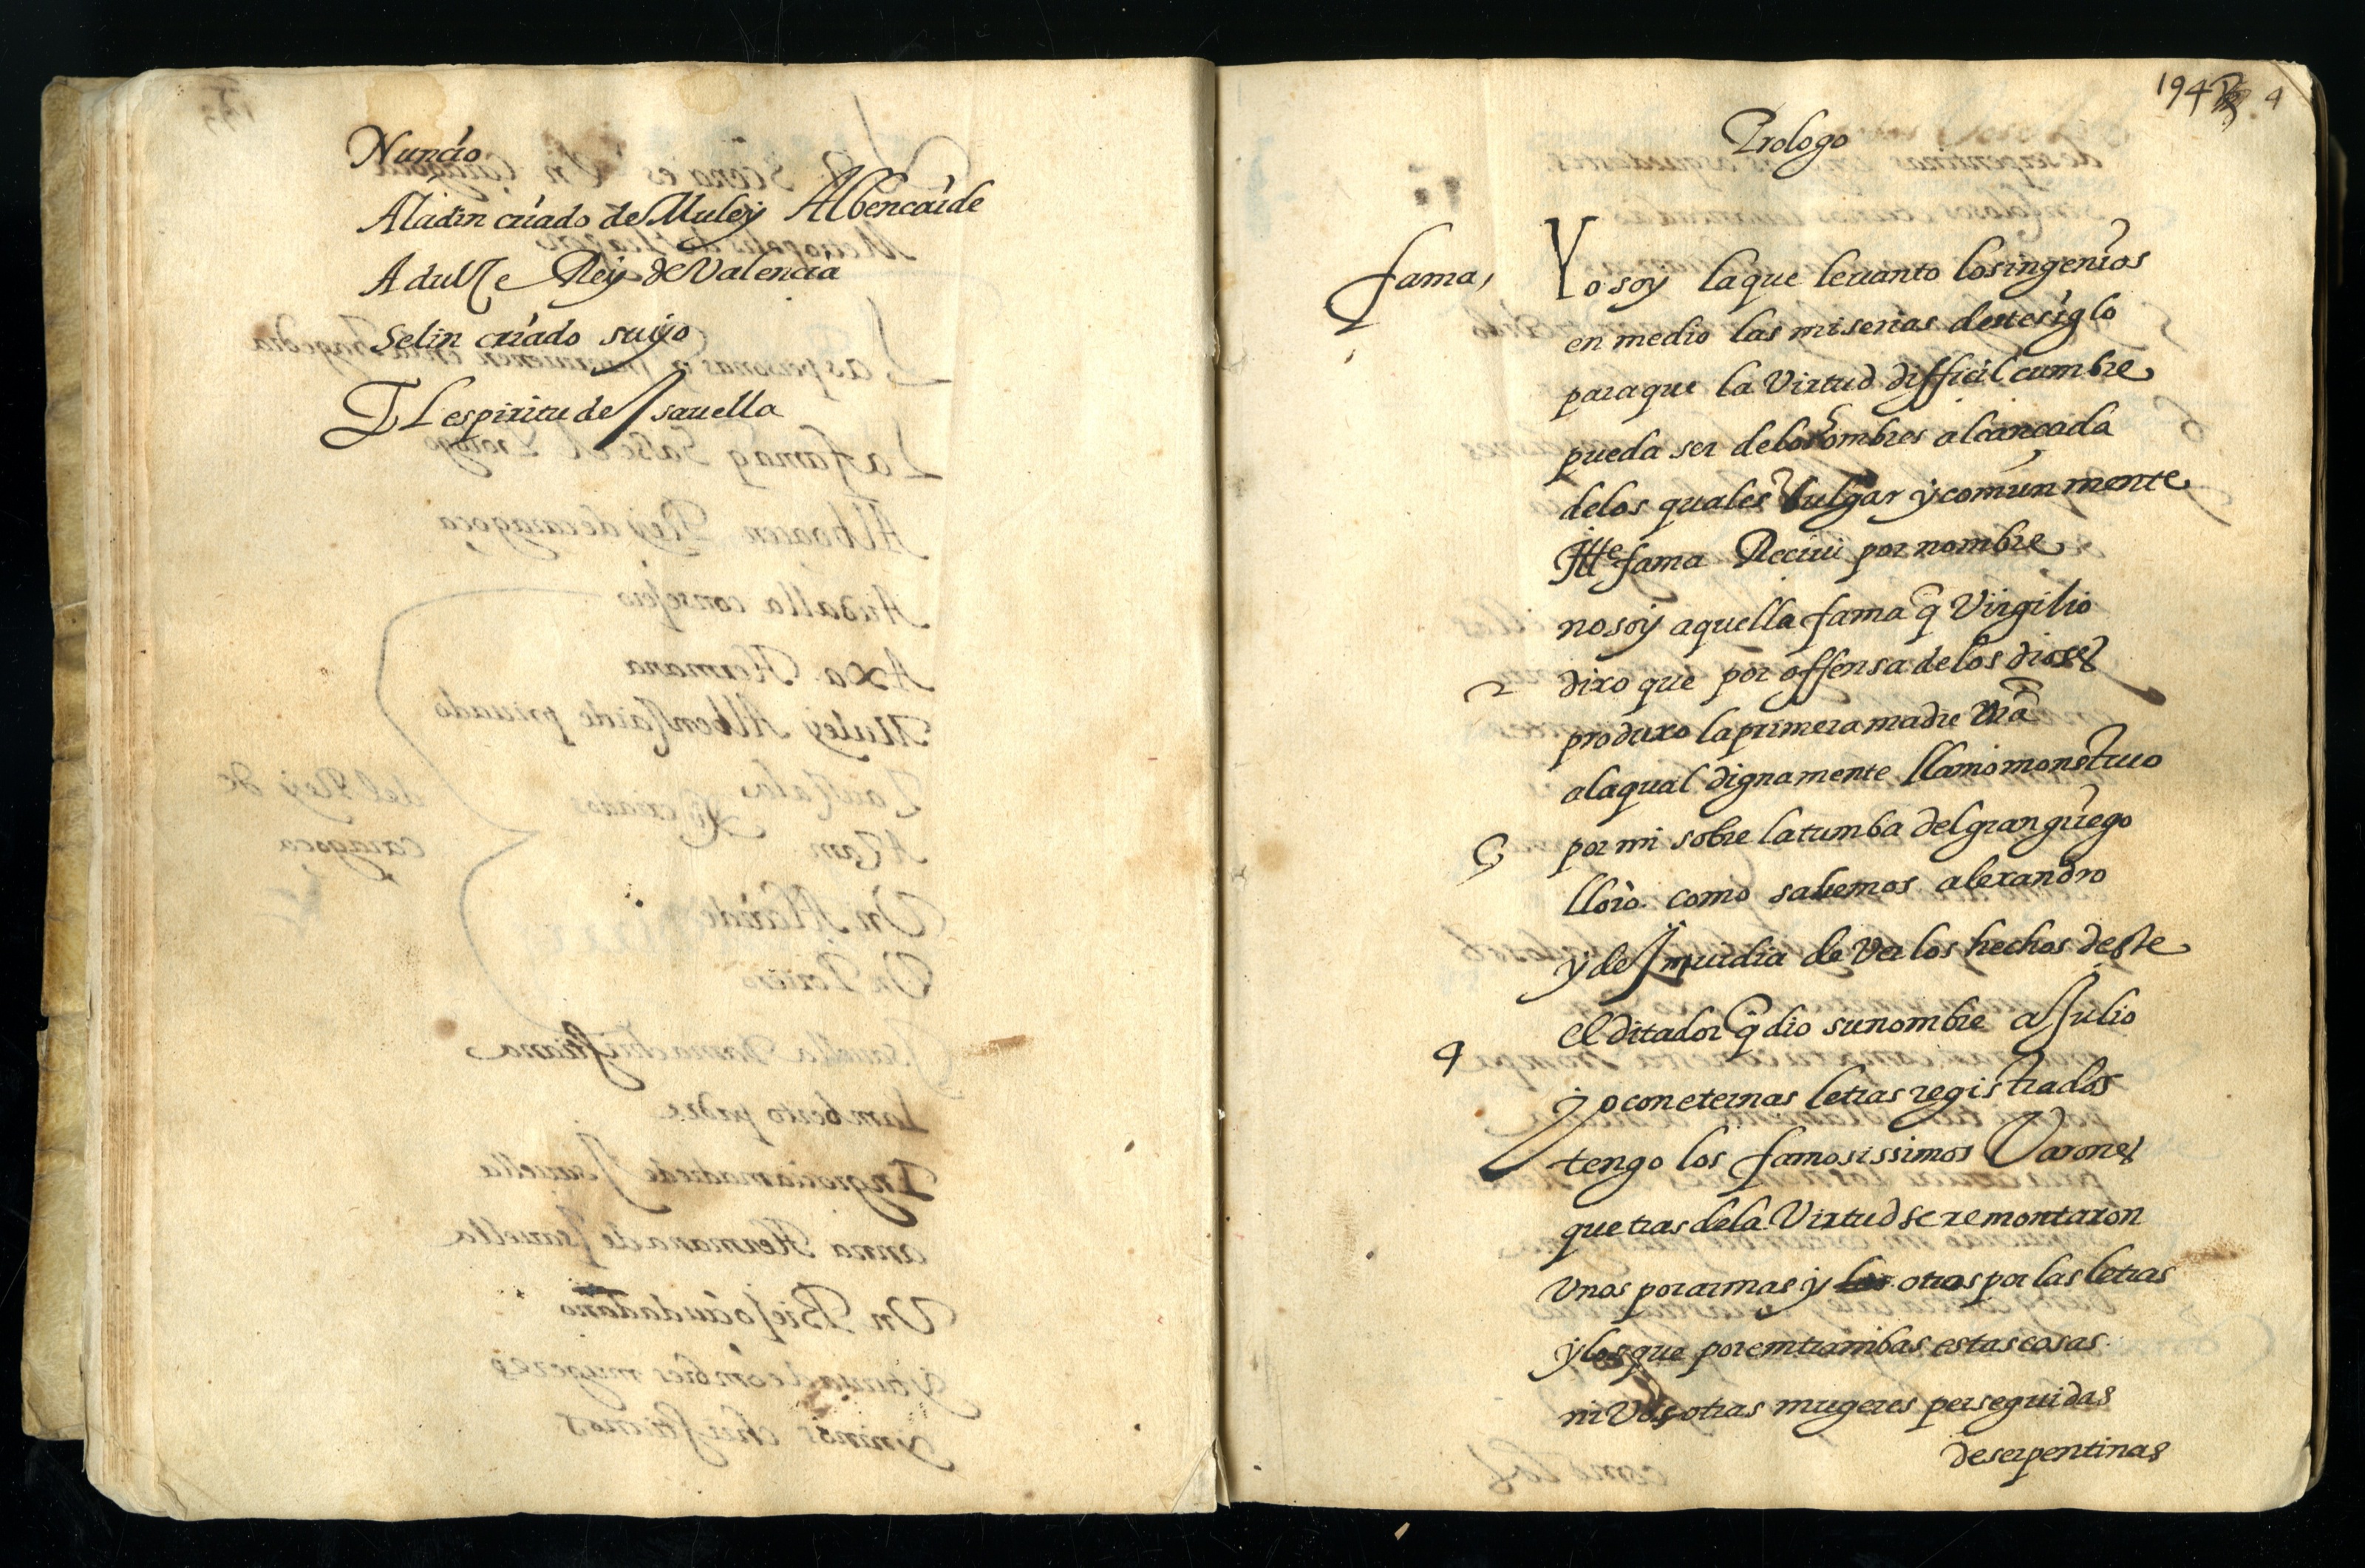 Nuncio
Aladin criado de Muley Albencaide
Adulçe Rey de Valencia
Selin criado suyo
El espiritu de Isauella
194 4
Prologo
fama, Yo soy la que leuanto los ingenios
en medio las miserias deste siglo
para que la Virtud difficil cumbre
pueda ser de los ombres alcançada
de los quales Vulgar y comunmente
fama Reciui por nombre
no soy aquella fama q̃ Virgilio
2 dixo que por offensa de los dioses
produxo la primera madre
a la qual dignamente llamo monstruo
3 por mi sobre la tumba del gran griego
lloro como sabemos alexandro
y de Imuidia de Ver los hechos deste
4 el ditador q̃ dio su nombre a Julio
yo con eternas letras registrados
tengo los famosissimos Varones
que tras de la Virtud se remontaron
Vnos por armas y otros por las letras
y los que por emtrambas estas cosas
ni Vosotras mugeres perseguidas
de serpentinas